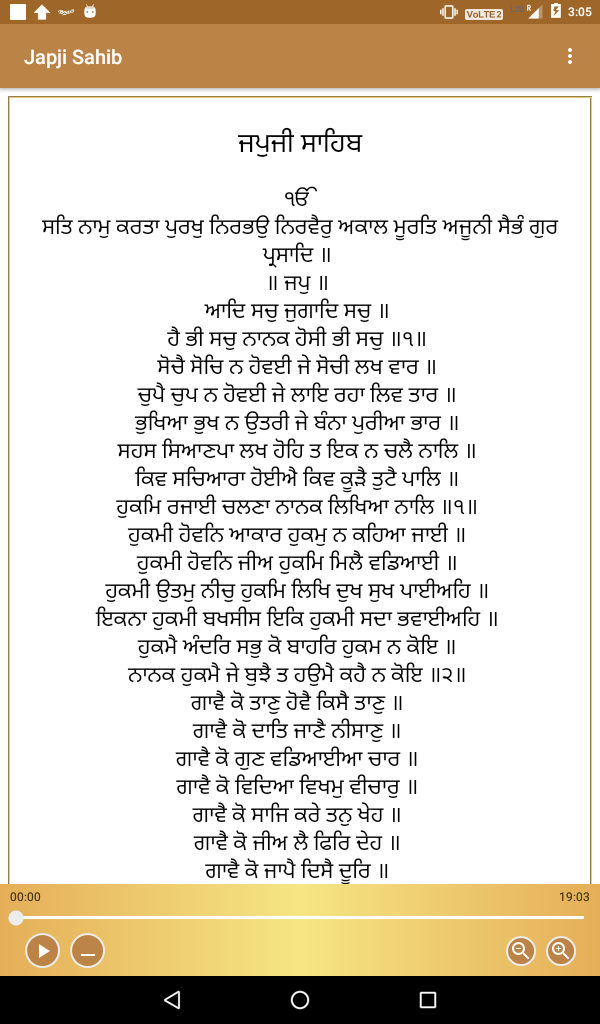 VoLTE 2
R
3:05
Japji Sahib
ਜਪੁਜੀ ਸਾਹਿਬ
ੴ
ਸਤਿ ਨਾਮੁ ਕਰਤਾ ਪੁਰਖੁ ਨਿਰਭਉ ਨਿਰਵੈਰੁ ਅਕਾਲ ਮੂਰਤਿ ਅਜੂਨੀ ਸੈਭੰ ਗੁਰ
ਪ੍ਰਸਾਦਿ ॥
॥ ਜਪੁ ॥
ਆਦਿ ਸਚੁ ਜੁਗਾਦਿ ਸਚੁ ॥
ਹੈ ਭੀ ਸਚੁ ਨਾਨਕ ਹੋਸੀ ਭੀ ਸਚੁ ॥੧॥
ਸੋਚੈ ਸੋਚਿ ਨ ਹੋਵਈ ਜੇ ਸੋਚੀ ਲਖ ਵਾਰ ॥
ਚੁਪੈ ਚੁਪ ਨ ਹੋਵਈ ਜੇ ਲਾਇ ਰਹਾ ਲਿਵ ਤਾਰ ॥
ਭੁਖਿਆ ਭੁਖ ਨ ਉਤਰੀ ਜੇ ਬੰਨਾ ਪੁਰੀਆ ਭਾਰ ॥
ਸਹਸ ਸਿਆਣਪਾ ਲਖ ਹੋਹਿ ਤ ਇਕ ਨ ਚਲੈ ਨਾਲਿ ॥
ਕਿਵ ਸਚਿਆਰਾ ਹੋਈਐ ਕਿਵ ਕੂੜੈ ਤੁਟੈ ਪਾਲਿ ॥
ਹੁਕਮਿ ਰਜਾਈ ਚਲਣਾ ਨਾਨਕ ਲਿਖਿਆ ਨਾਲਿ ॥੧॥
ਹੁਕਮੀ ਹੋਵਨਿ ਆਕਾਰ ਹੁਕਮੁ ਨ ਕਹਿਆ ਜਾਈ ॥
ਹੁਕਮੀ ਹੋਵਨਿ ਜੀਅ ਹੁਕਮਿ ਮਿਲੈ ਵਡਿਆਈ ॥
ਹੁਕਮੀ ਉਤਮੁ ਨੀਚੁ ਹੁਕਮਿ ਲਿਖਿ ਦੁਖ ਸੁਖ ਪਾਈਅਹਿ ॥
ਇਕਨਾ ਹੁਕਮੀ ਬਖਸੀਸ ਇਕਿ ਹੁਕਮੀ ਸਦਾ ਭਵਾਈਅਹਿ ॥
ਹੁਕਮੈ ਅੰਦਰਿ ਸਭੁ ਕੋ ਬਾਹਰਿ ਹੁਕਮ ਨ ਕੋਇ ॥
ਨਾਨਕ ਹੁਕਮੈ ਜੇ ਬੁਝੈ ਤ ਹਉਮੈ ਕਹੈ ਨ ਕੋਇ ॥੨॥
ਗਾਵੈ ਕੋ ਤਾਣੁ ਹੋਵੈ ਕਿਸੈ ਤਾਣੁ ॥
ਗਾਵੈ ਕੋ ਦਾਤਿ ਜਾਣੈ ਨੀਸਾਣੁ ॥
ਗਾਵੈ ਕੋ ਗੁਣ ਵਡਿਆਈਆ ਚਾਰ ॥
ਗਾਵੈ ਕੋ ਵਿਦਿਆ ਵਿਖਮੁ ਵੀਚਾਰੁ ॥
ਗਾਵੈ ਕੋ ਸਾਜਿ ਕਰੇ ਤਨੁ ਖੇਹ ॥
ਗਾਵੈ ਕੋ ਜੀਅ ਲੈ ਫਿਰਿ ਦੇਹ ॥
ਗਾਵੈ ਕੋ ਜਾਪੈ ਦਿਸੈ ਦੂਰਿ ॥
00:00 19:03